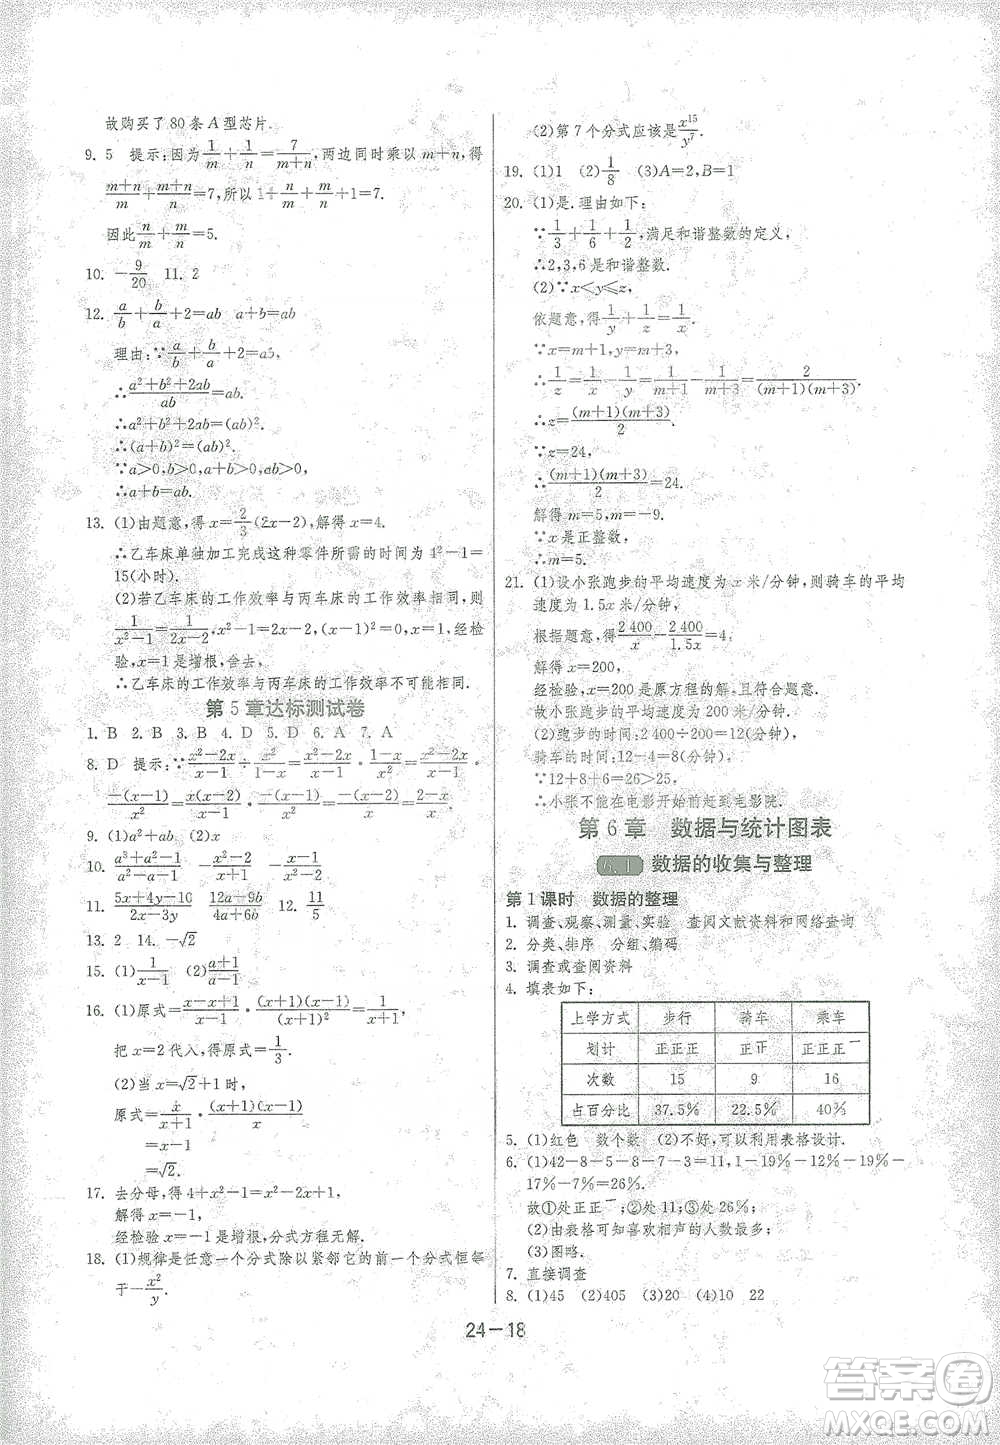 故购买了80条A型芯片.
9. 5 提示:因为1/m+1/n=7/(m+n),两边同时乘以m+n,得
(m+n)/m+(m+n)/n=7,所以1+n/m+m/n+1=7.
因此n/m+m/n=5.
10. -9/20 11. 2
12. a/b+b/a+2=ab a+b=ab
理由:∵a/b+b/a+2=ab,
∴(a²+b²+2ab)/ab=ab.
∴a²+b²+2ab=(ab)².
∴(a+b)²=(ab)².
∵a>0,b>0,a+b>0,ab>0,
∴a+b=ab.
13. (1)由题意,得x=2/3(2x-2),解得x=4.
∴乙车床单独加工完成这种零件所需的时间为4²-1=
15(小时).
(2)若乙车床的工作效率与丙车床的工作效率相同,则
1/(x²-1)=1/(2x-2),x²-1=2x-2,(x-1)²=0,x=1,经检
验,x=1是增根,舍去,
∴乙车床的工作效率与丙车床的工作效率不可能相同.
第5章达标测试卷
1. B 2. D 3. B 4. D 5. D 6. A 7. A
8. D 提示:∵(x²-2x)/(x-1)÷x²/(1-x)=(x²-2x)/(x-1)·
-(x-1)/x²=x(x-2)/(x-1)·-(x-1)/x²=-(x-2)/x=(2-x)/x.
9. (1)a²+ab (2)x
10. (a³+a²-1)/(a²-a+1) -(x²-x)/(x²-2)
11. (5x+4y-10)/(2x-3y) (12a+9b)/(4a-6b) 12. 11/5
13. 2 14. -√2
15. (1)1/(x-1) (2)(a+1)/(a-1)
16. (1)原式=(x-x+1)/(x-1)·(x+1)(x-1)/(x+1)²=1/(x+1),
把x=2代入,得原式=1/3.
(2)当x=√2+1时,
原式=x/(x+1)·(x+1)(x-1)/x
=x-1
=√2.
17. 去分母,得4+x²-1=x²-2x+1,
解得x=-1,
经检验x=-1是增根,分式方程无解.
18. (1)规律是任意一个分式除以紧邻它的前一个分式恒等
于-x²/y.
(2)第7个分式应该是x¹⁵/y⁷.
19. (1)1 (2)1/8 (3)A=2,B=1
20. (1)是.理由如下:
∵1/3+1/6=1/2,满足和谐整数的定义,
∴2,3,6是和谐整数.
(2)∵x<y≤z,
依题意,得1/y+1/z=1/x.
∵x=m+1,y=m+3,
∴1/z=1/x-1/y=1/(m+1)-1/(m+3)=2/((m+1)(m+3))
∴z=(m+1)(m+3)/2.
∵z=24,
∴(m+1)(m+3)/2=24.
解得m=5,m=-9.
∵x是正整数,
∴m=5.
21. (1)设小张跑步的平均速度为x米/分钟,则骑车的平均
速度为1.5x米/分钟,
根据题意,得2 400/x-2 400/1.5x=4,
解得x=200,
经检验,x=200是原方程的解,且符合题意.
故小张跑步的平均速度为200米/分钟.
(2)跑步的时间:2 400÷200=12(分钟),
骑车的时间:12-4=8(分钟),
∵12+8+6=26>25,
∴小张不能在电影开始前赶到电影院.
第6章 数据与统计图表
6.1 数据的收集与整理
第1课时 数据的整理
1. 调查、观察、测量、实验 查阅文献资料和网络查询
2. 分类、排序 分组、编码
3. 调查或查阅资料
4. 填表如下:
上学方式 步行 骑车 乘车
划计 正正正 正正 正正正一
次数 15 9 16
占百分比 37.5% 22.5% 40%
5. (1)红色 数个数 (2)不好,可以利用表格设计.
6. (1)42-8-5-15-3=11,1-19%-12%-36%-
17%-7%=26%.
故①处正正一;②处11;③处26%.
(2)由表格可知喜欢相声的人数最多.
(3)图略.
7. 直接调查
8. (1)45 (2)405 (3)20 (4)10 22
24-18
答案卷
MXQE.COM